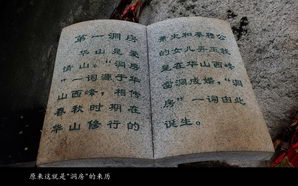 第一洞房
华山是爱
情山。“洞房
”一词源于华
山西峰，相传
春秋时期在
华山修行的
萧史和秦穆公
的女儿弄玉就
是在华山西峰
凿洞成婚，“洞
房”一词由此
诞生。
原来这就是“洞房”的来历